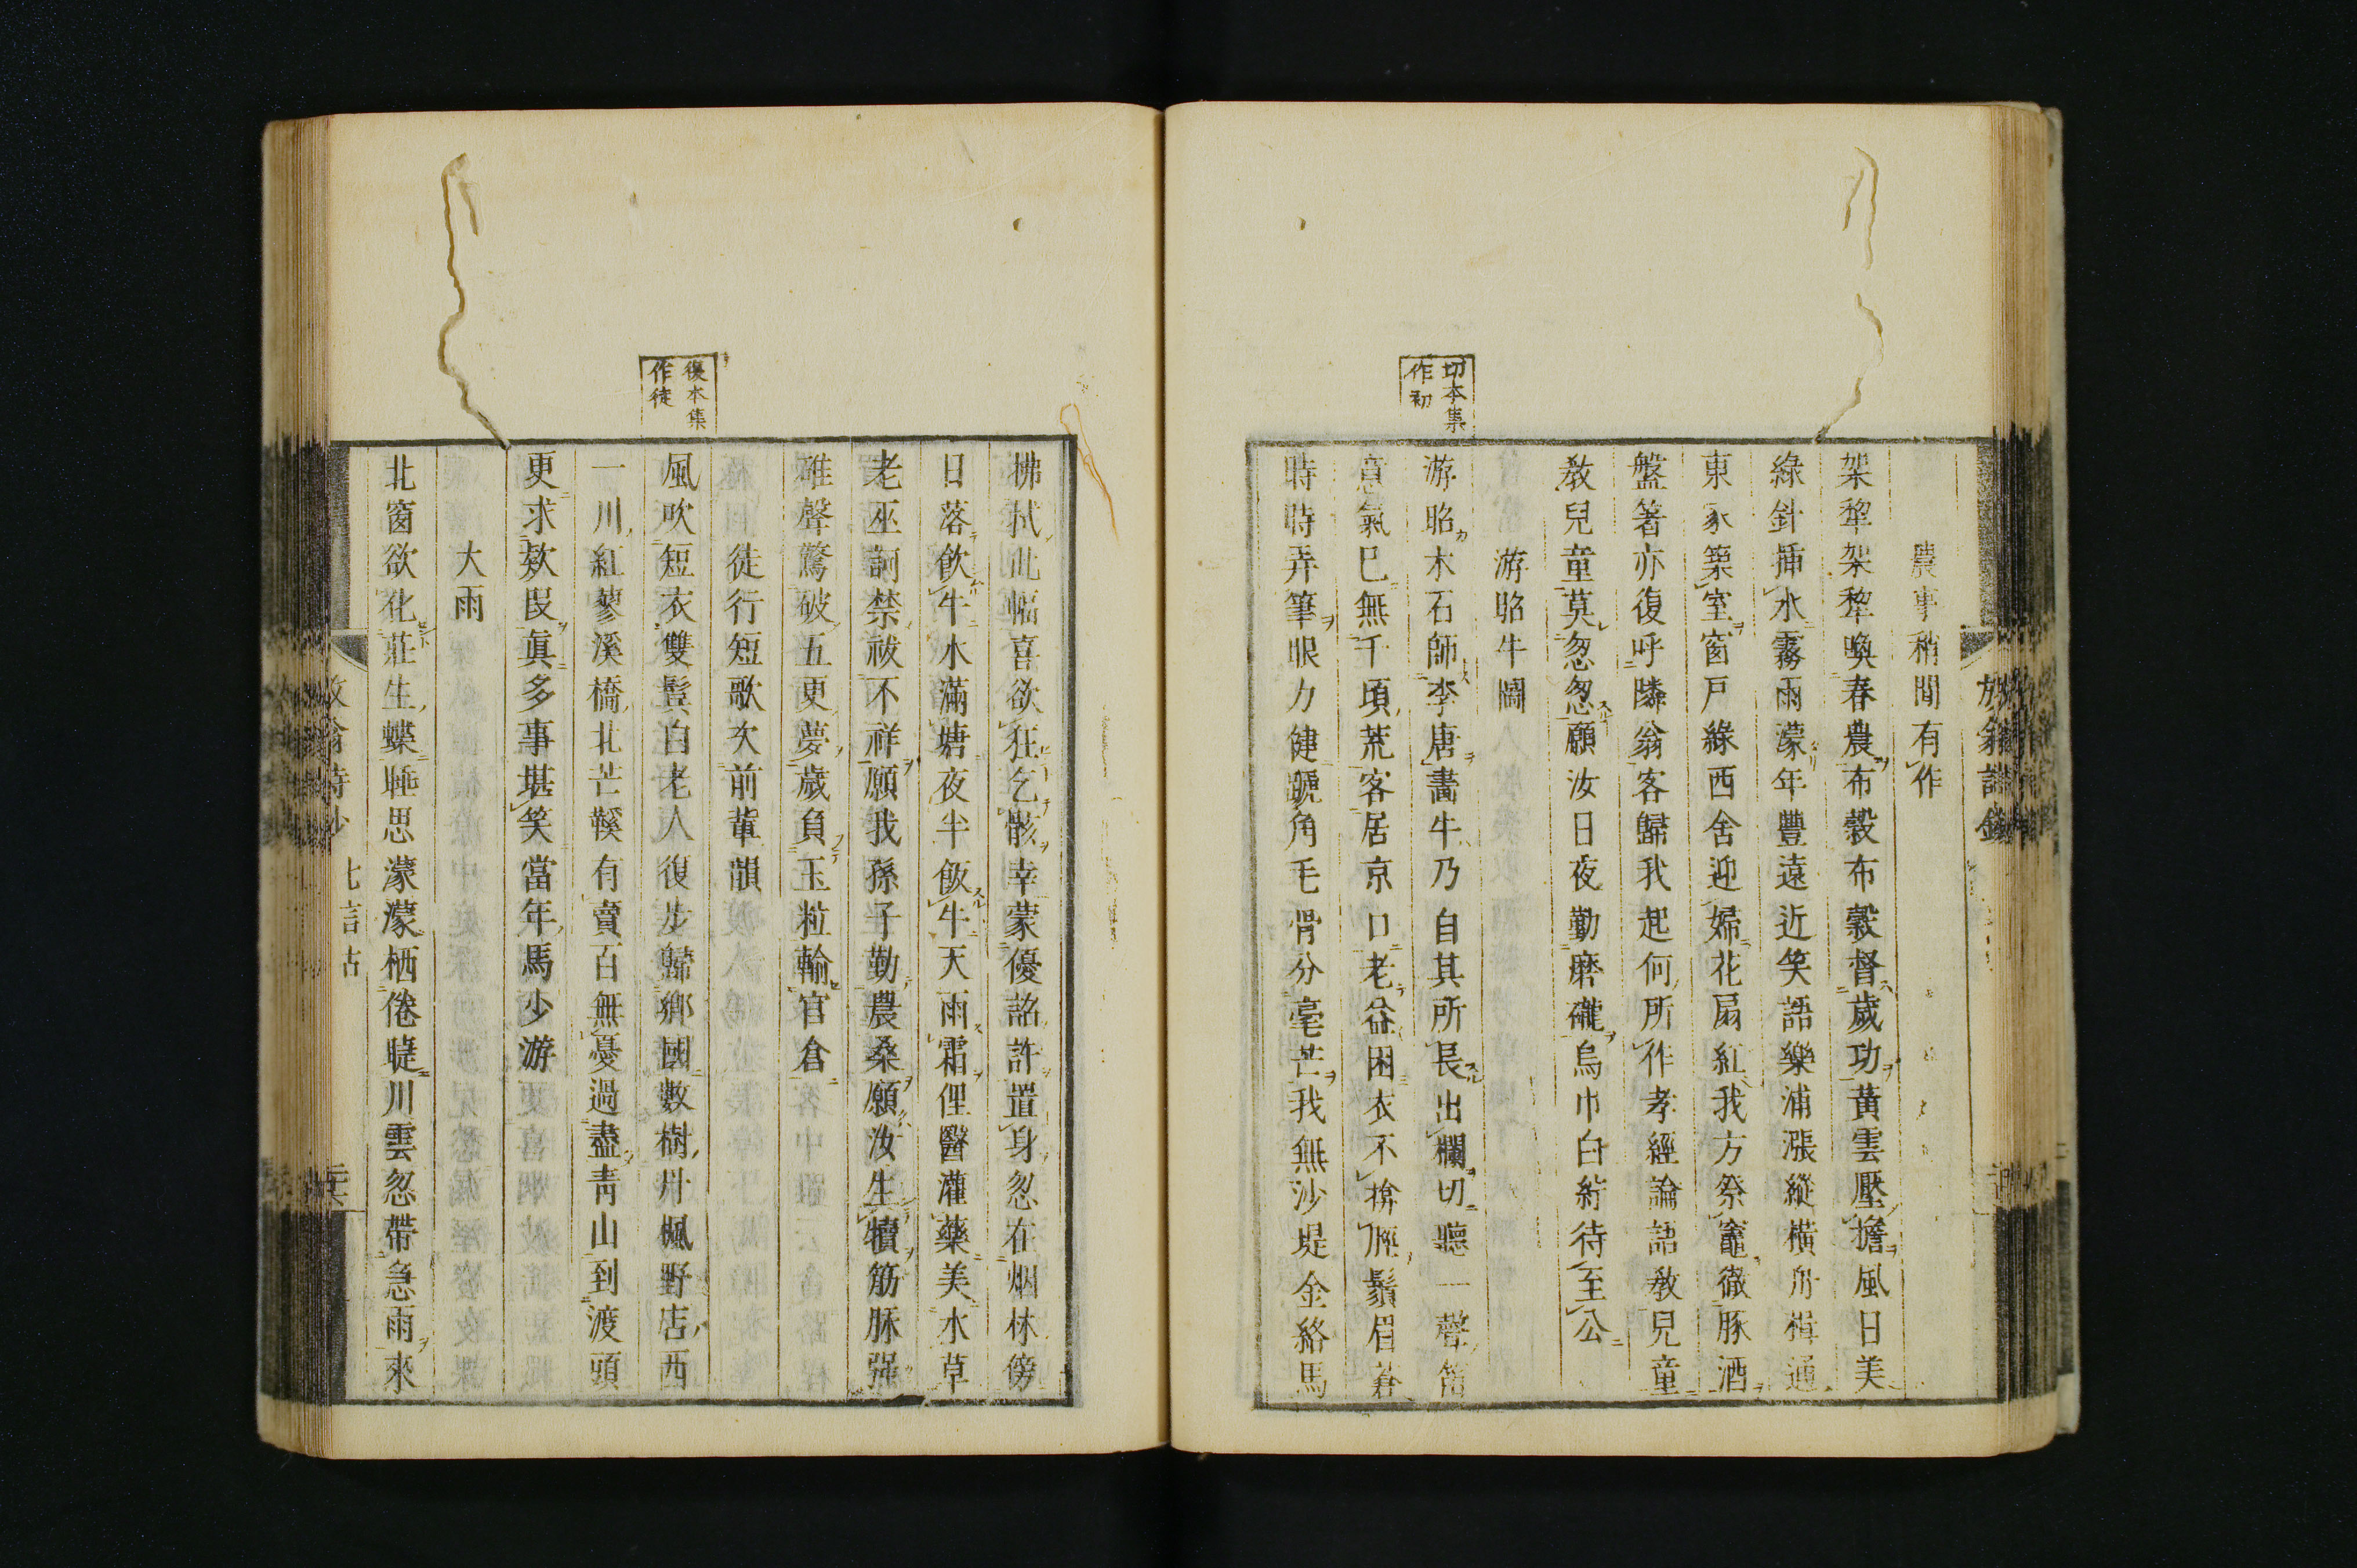 農事稍閒有作
架犂架犂喚春農布穀布穀督歲功黃雲壓擔風日美
綠針揷水霧雨濛年豐遠近笑語樂浦漲縱橫舟楫通
東家築室窗戸綠西舍迎婦花扇紅我方祭竈徹豚酒
盤箸亦復呼隣翁客歸我起何所作孝經論語敎兒童
敎兒童莫怱怱願汝日夜勤磨礲烏巾白紵待至公
游昭牛圖
切本集
作初
游昭木石師李唐畵牛乃自其所長出欄切聽一聲笛
意氣已無千頃荒客居京口老益困衣不揜脛鬚眉蒼
時時弄筆眼力健蹏角毛骨分毫芒我無沙堤金絡馬
拂拭此幅喜欲狂乞骸幸蒙優詔許置身忽在烟林傍
日落飮牛水滿塘夜半飯牛天雨霜俚醫灌藥美水草
老巫訶禁祓不祥願我孫子勤農桑願汝生犢筋脉强
碓聲驚破五更夢歲負玉粒輸官倉
徒行短歌次前輩韻
復本集
作徒
風吹短衣雙鬢白老人復步歸鄉國數樹丹楓野店西
一川紅蓼溪橋北芒鞵有賣百無憂過盡靑山到渡頭
更求欵段眞多事堪笑當年馬少游
大雨
北窗欲化莊生蝶睡思濛濛栖倦睫川雲忽帶急雨來